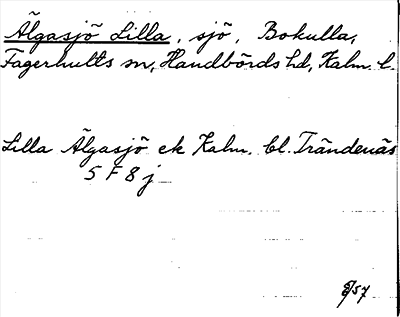 Älgasjö Lilla, sjö, Bokulla,
Fagerhults sn, Handbörds hd, Kalm. l.
Lilla Älgasjö ek Kalm. bl. Trändenäs
5 F 8 j
/57